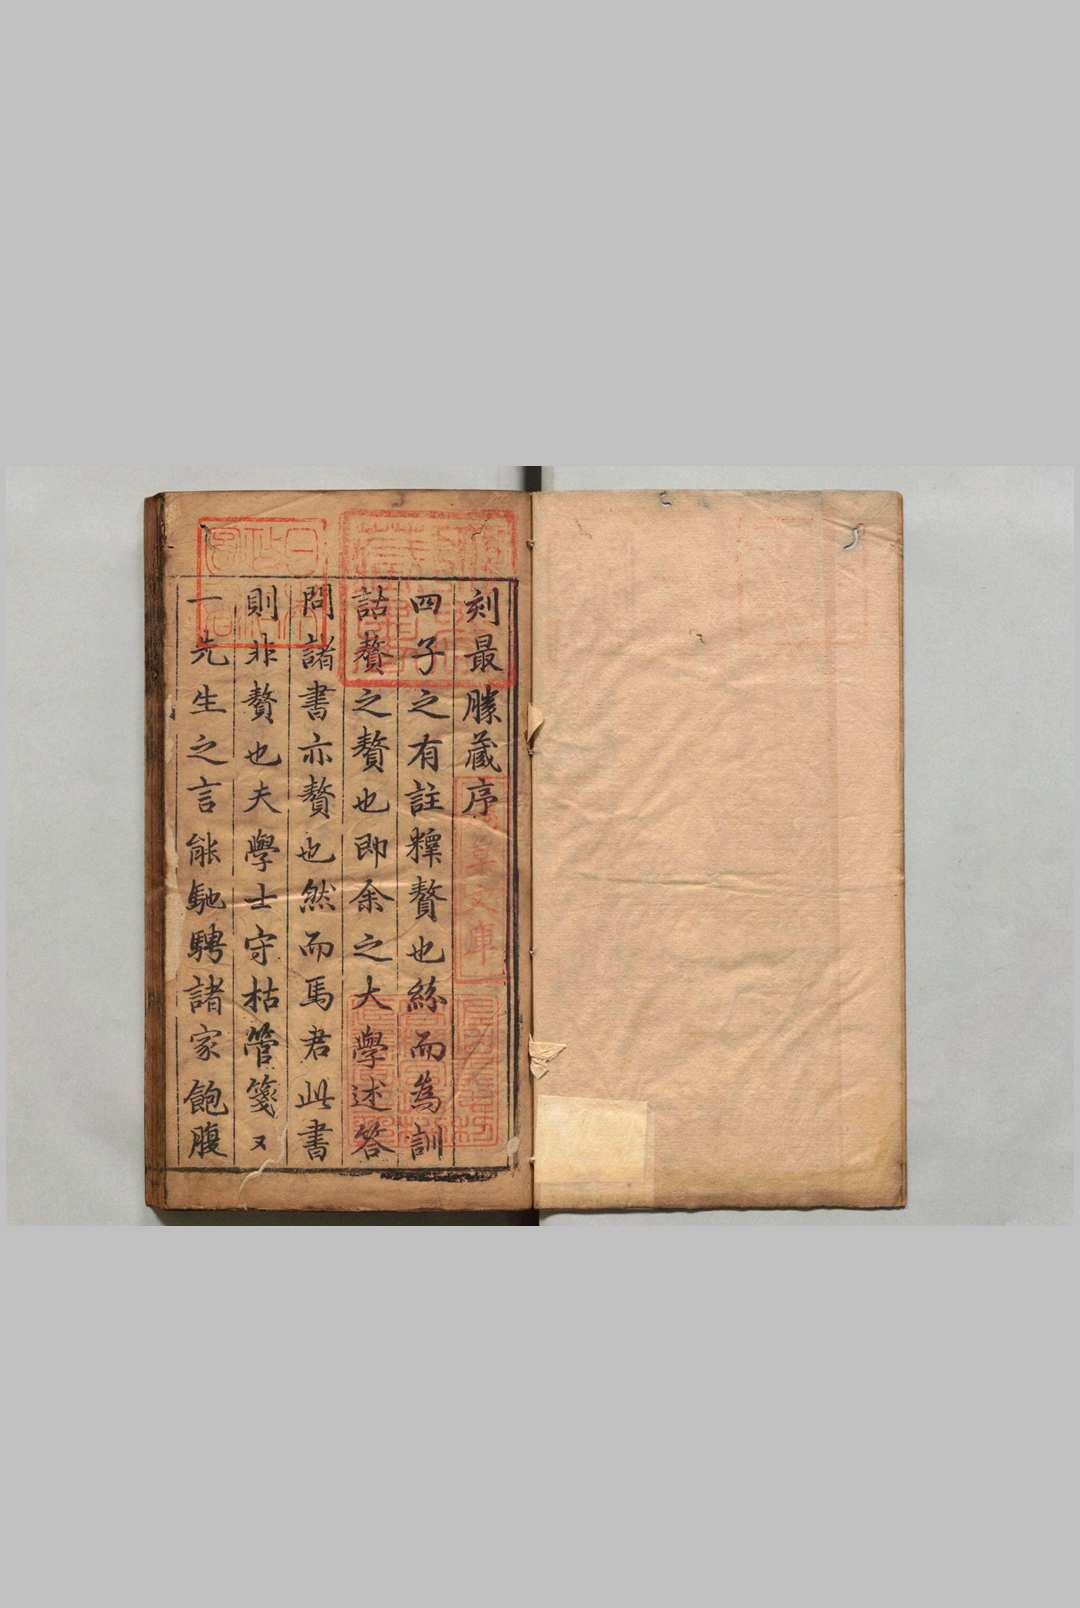 刻最勝藏序
四子之有註釋贅也絲而為訓
詁贅之贅也即余之大學述答
問諸書亦贅也然而馬君此書
則非贅也夫學士守枯管箋又
一先生之言能馳騁諸家飽腹
文庫